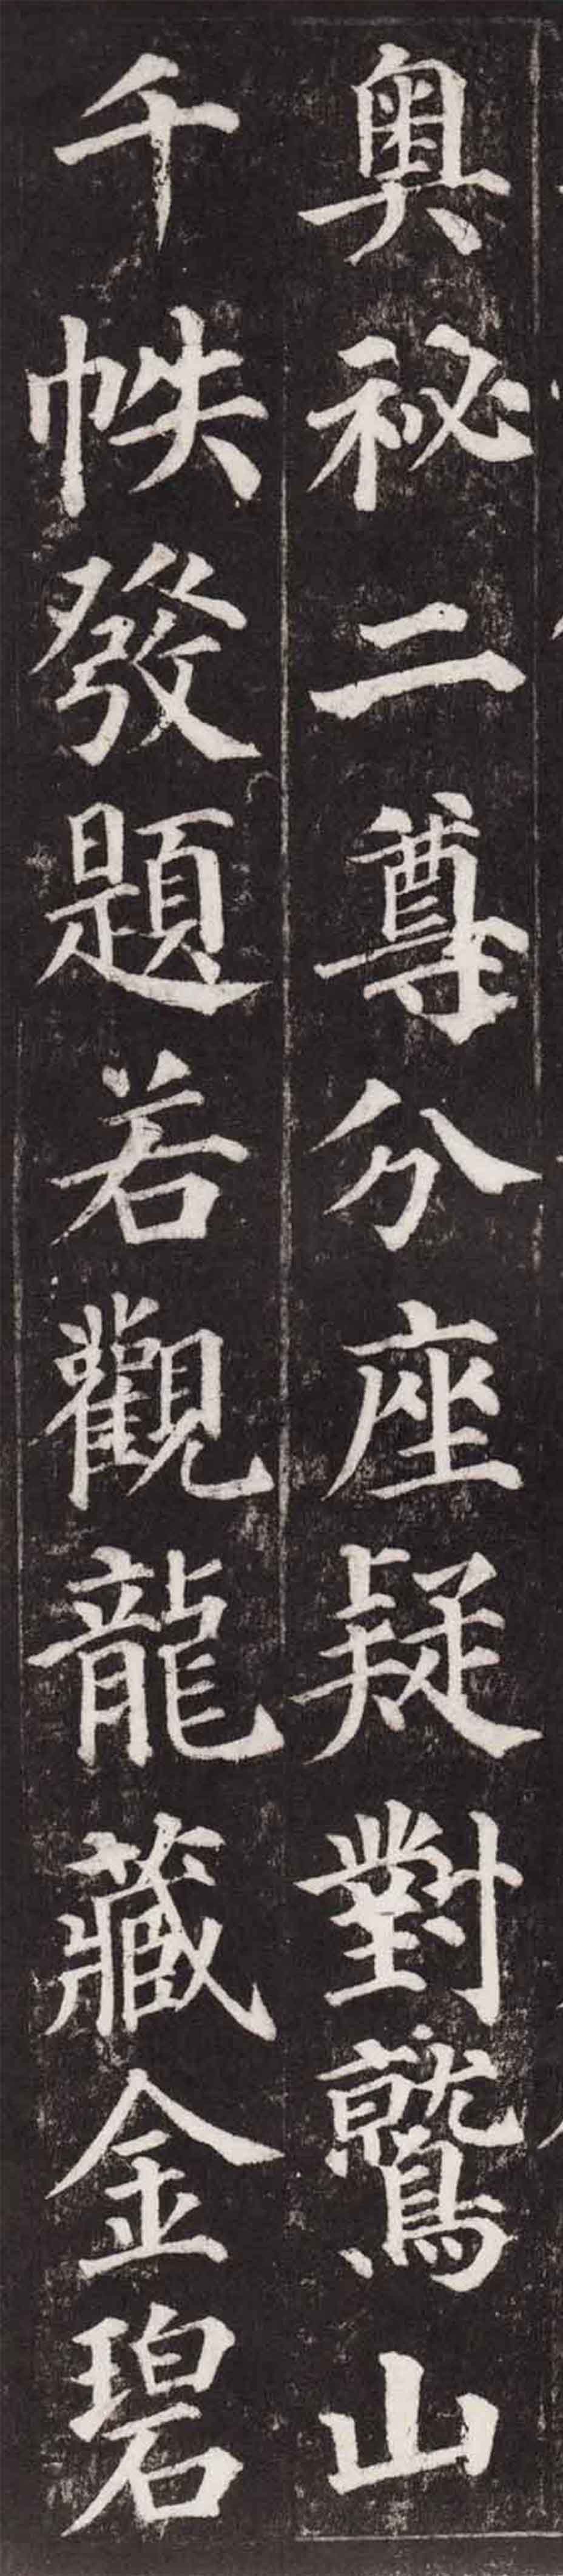 奥秘二尊分座疑對鷲山
千帙發題若觀龍藏金碧